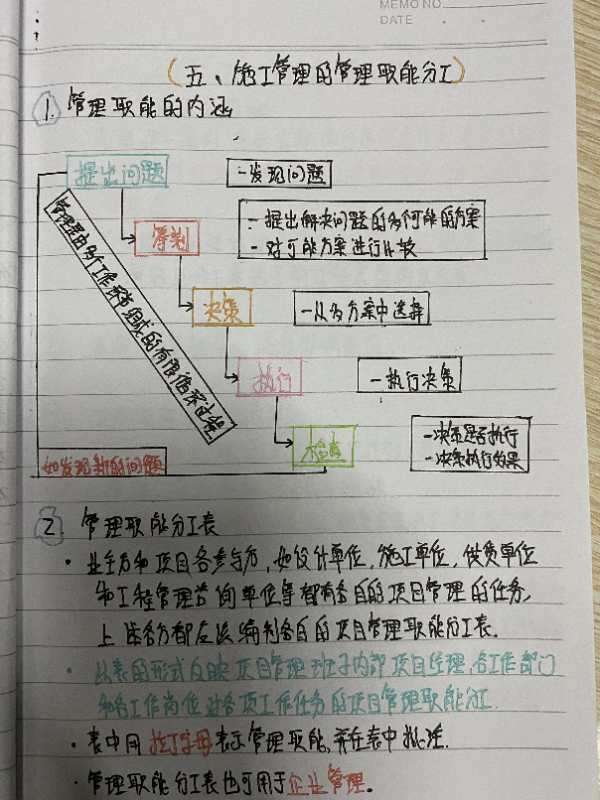 MEMO NO.
DATE
(五、施工管理的管理职能分工)
1. 管理职能的内涵
提出问题
-发现问题
筹划
-提出解决问题的多个可能的方案
-对可能方案进行比较
决策
-从多方案中选择
执行
-执行决策
检查
-决策是否执行
-决策执行效果
管理是由多个工作环节组成的有限循环过程
如发现新的问题
2. 管理职能分工表
·业主方和项目各参与方,如设计单位,施工单位,供货单位
和工程管理咨询单位等都有各自的项目管理的任务,
上述各方都应该编制各自的项目管理职能分工表.
·从表的形式反映项目管理班子内部项目经理,各工作部门
和各工作岗位对各项工作任务的项目管理职能分工.
·表中用拉丁字母表示管理职能,并在表中批注.
·管理职能分工表也可用于企业管理。